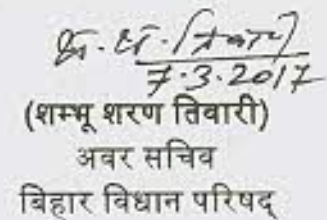 7.3.2017
(शम्भू शरण तिवारी)
अवर सचिव
बिहार विधान परिषद्